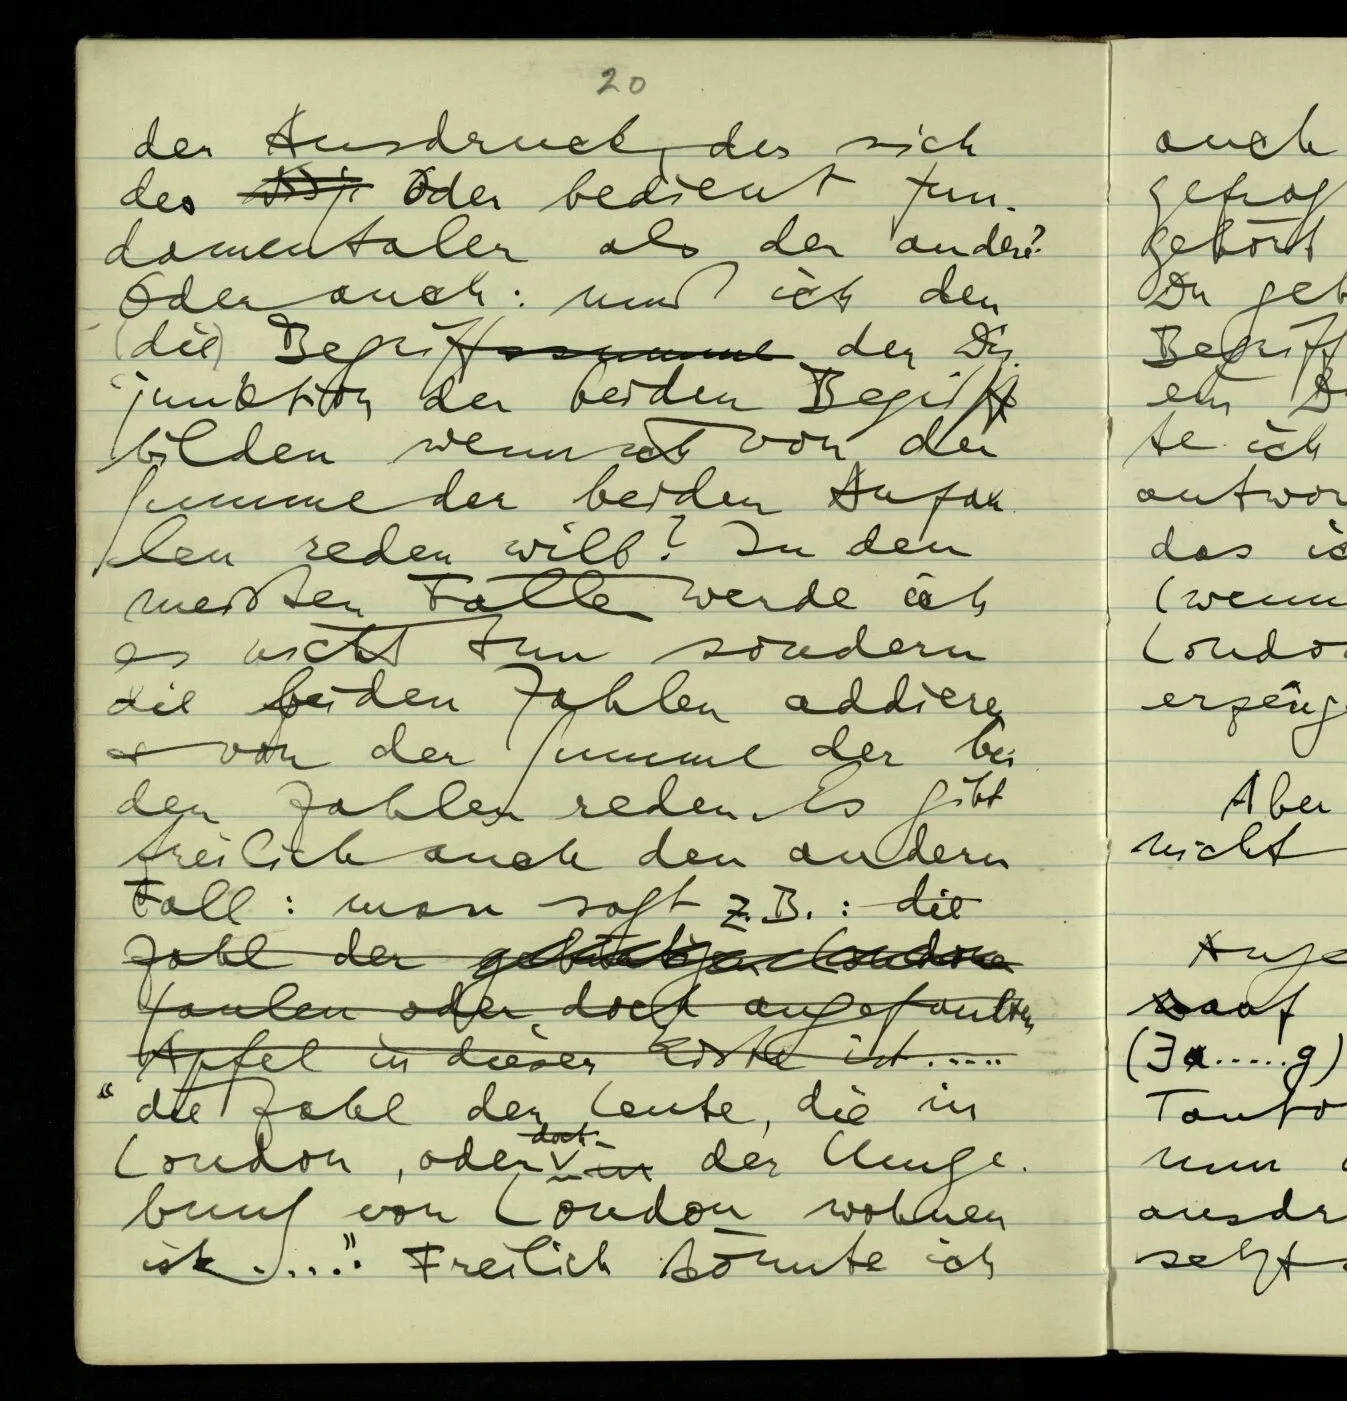 20
der Ausdruck, der sich
des Disj. Oder bedient fun-
damentaler als der andere?
Oder auch: muß ich den
(die) Begriffssumme der Dis-
junktion der beiden Begriffe
bilden wenn ich von der
Summe der beiden Anzah-
len reden will? In den
meisten Fällen werde ich
es nicht tun sondern
die beiden Zahlen addieren
& von der Summe der bei-
den Zahlen reden. Es gibt
freilich auch den andern
Fall: man sagt z.B.: die
Zahl der
faulen oder doch angefaulten
Äpfel in dieser Kiste ist .....
"die Zahl der Leute, die in
doch
London, oder in der Umge-
bung von London wohnen
ist ....." Freilich könnte ich
auch
gefrag
gehört
Du geb
Begriff
ein
te ich
antwor
das is
(wenn
London
erzeug
Aber
nicht
Ange
auf
(∃x.....g)
Tauto
nun
ausdr
setzt